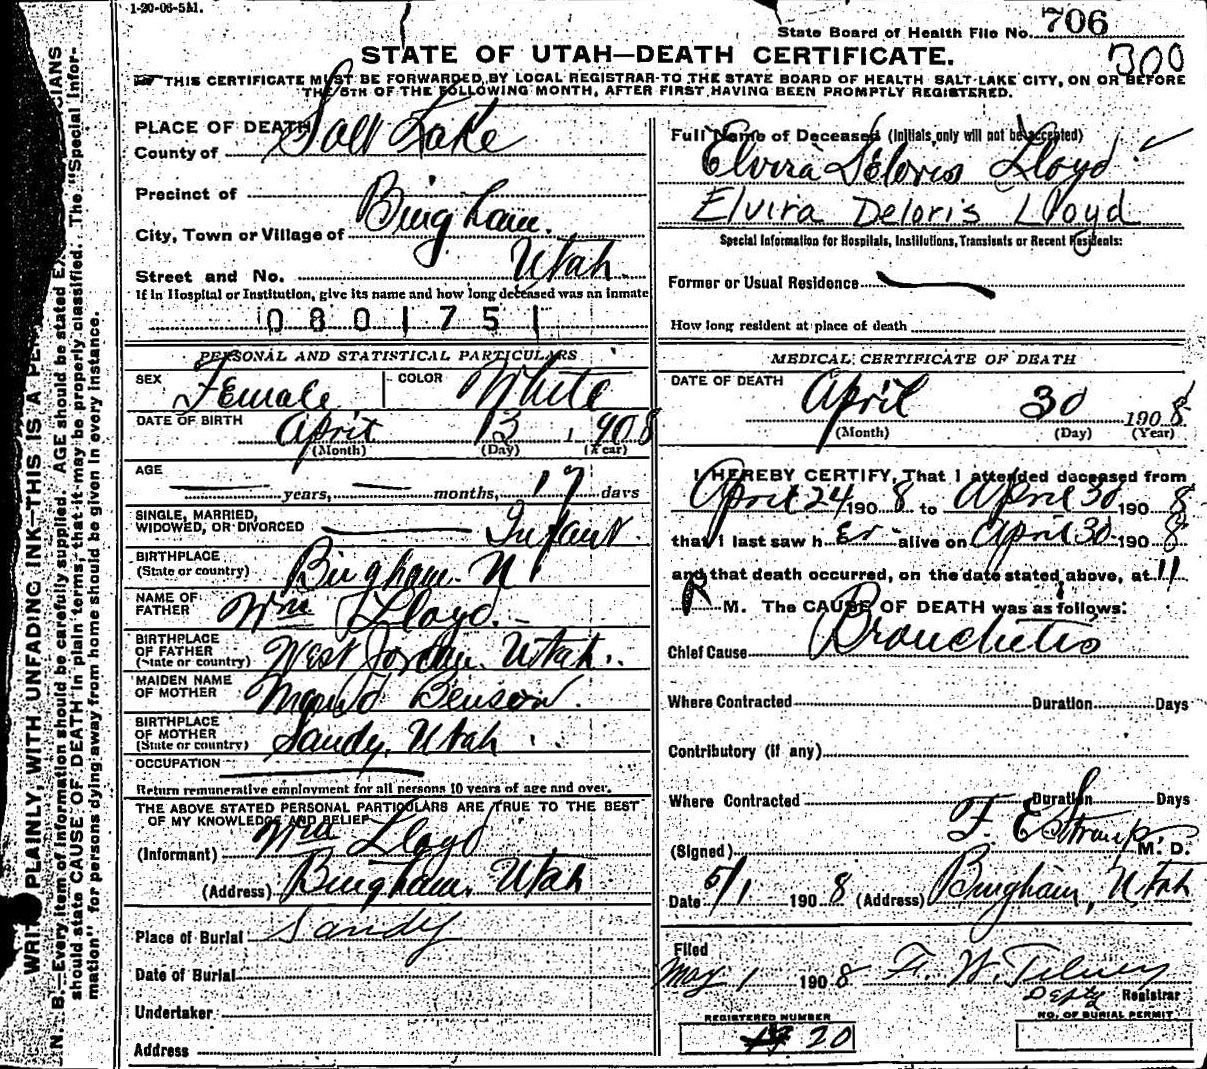 1-20-06-5M.
State Board of Health File No. 706
300
STATE OF UTAH—DEATH CERTIFICATE.
THIS CERTIFICATE MUST BE FORWARDED BY LOCAL REGISTRAR TO THE STATE BOARD OF HEALTH SALT LAKE CITY, ON OR BEFORE
THE 5TH OF THE FOLLOWING MONTH, AFTER FIRST HAVING BEEN PROMPTLY REGISTERED.
WRITE PLAINLY, WITH UNFADING INK—THIS IS A
N. B.—Every item of information should be carefully supplied. AGE should be stated
should state CAUSE OF DEATH in plain terms, that it may be properly classified. The "Special Infor-
mation" for persons dying away from home should be given in every instance.
PLACE OF DEATH
County of Salt Lake
Precinct of
City, Town or Village of Bingham.
Street and No. Utah.
If in Hospital or Institution, give its name and how long deceased was an inmate
0 8 0 1 7 5 1
PERSONAL AND STATISTICAL PARTICULARS
SEX Female COLOR White
DATE OF BIRTH April 13 1908
(Month) (Day) (Year)
AGE
— years, — months, 17 days
SINGLE, MARRIED,
WIDOWED, OR DIVORCED — Infant
BIRTHPLACE
(State or country) Bingham U
NAME OF
FATHER Wm Lloyd.
BIRTHPLACE
OF FATHER
(State or country) West Jordan. Utah.
MAIDEN NAME
OF MOTHER Maud Benson.
BIRTHPLACE
OF MOTHER
(State or country) Sandy, Utah
OCCUPATION
Return remunerative employment for all persons 10 years of age and over.
THE ABOVE STATED PERSONAL PARTICULARS ARE TRUE TO THE BEST
OF MY KNOWLEDGE AND BELIEF
(Informant) Wm Lloyd
(Address) Bingham. Utah
Place of Burial Sandy
Date of Burial
Undertaker
Address
Full Name of Deceased (Initials only will not be accepted)
Elvira Deloris Lloyd
Elvira Deloris Lloyd
Special Information for Hospitals, Institutions, Transients or Recent Residents:
Former or Usual Residence —
How long resident at place of death
MEDICAL CERTIFICATE OF DEATH
DATE OF DEATH April 30 1908
(Month) (Day) (Year)
I HEREBY CERTIFY, That I attended deceased from
April 24 1908 to April 30 1908
that I last saw her alive on April 30 1908
and that death occurred, on the date stated above, at 11
M. The CAUSE OF DEATH was as follows:
Chief Cause Bronchitis
Where Contracted Duration Days
Contributory (if any)
Where Contracted Duration Days
(Signed) F. E. Straup M. D.
Date 5/1 1908 (Address) Bingham, Utah
Filed
May 1 1908 F. W. Tilney
Depty Registrar
REGISTERED NUMBER
20
NO. OF BURIAL PERMIT